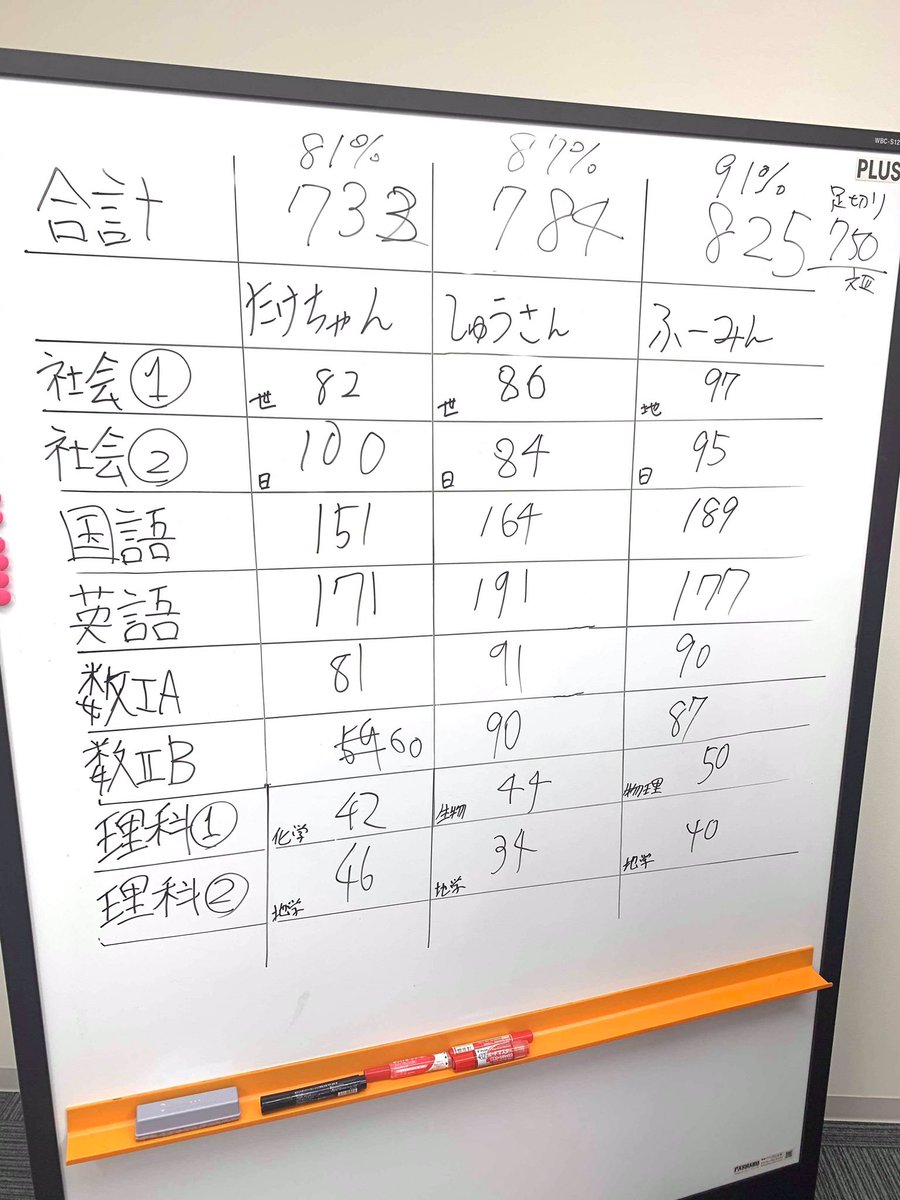 81% 87% 91%
合計 733 784 825
足切り
750
文Ⅲ
たけちゃん しゅうさん ふーみん
社会① 世 82 世 86 地 97
社会② 日 100 日 84 日 95
国語 151 164 189
英語 171 191 177
数ⅠA 81 91 90
数ⅡB 60 90 87
理科① 化学 42 生物 44 物理 50
理科② 地学 46 地学 34 地学 40
PLUS
WBC-S12